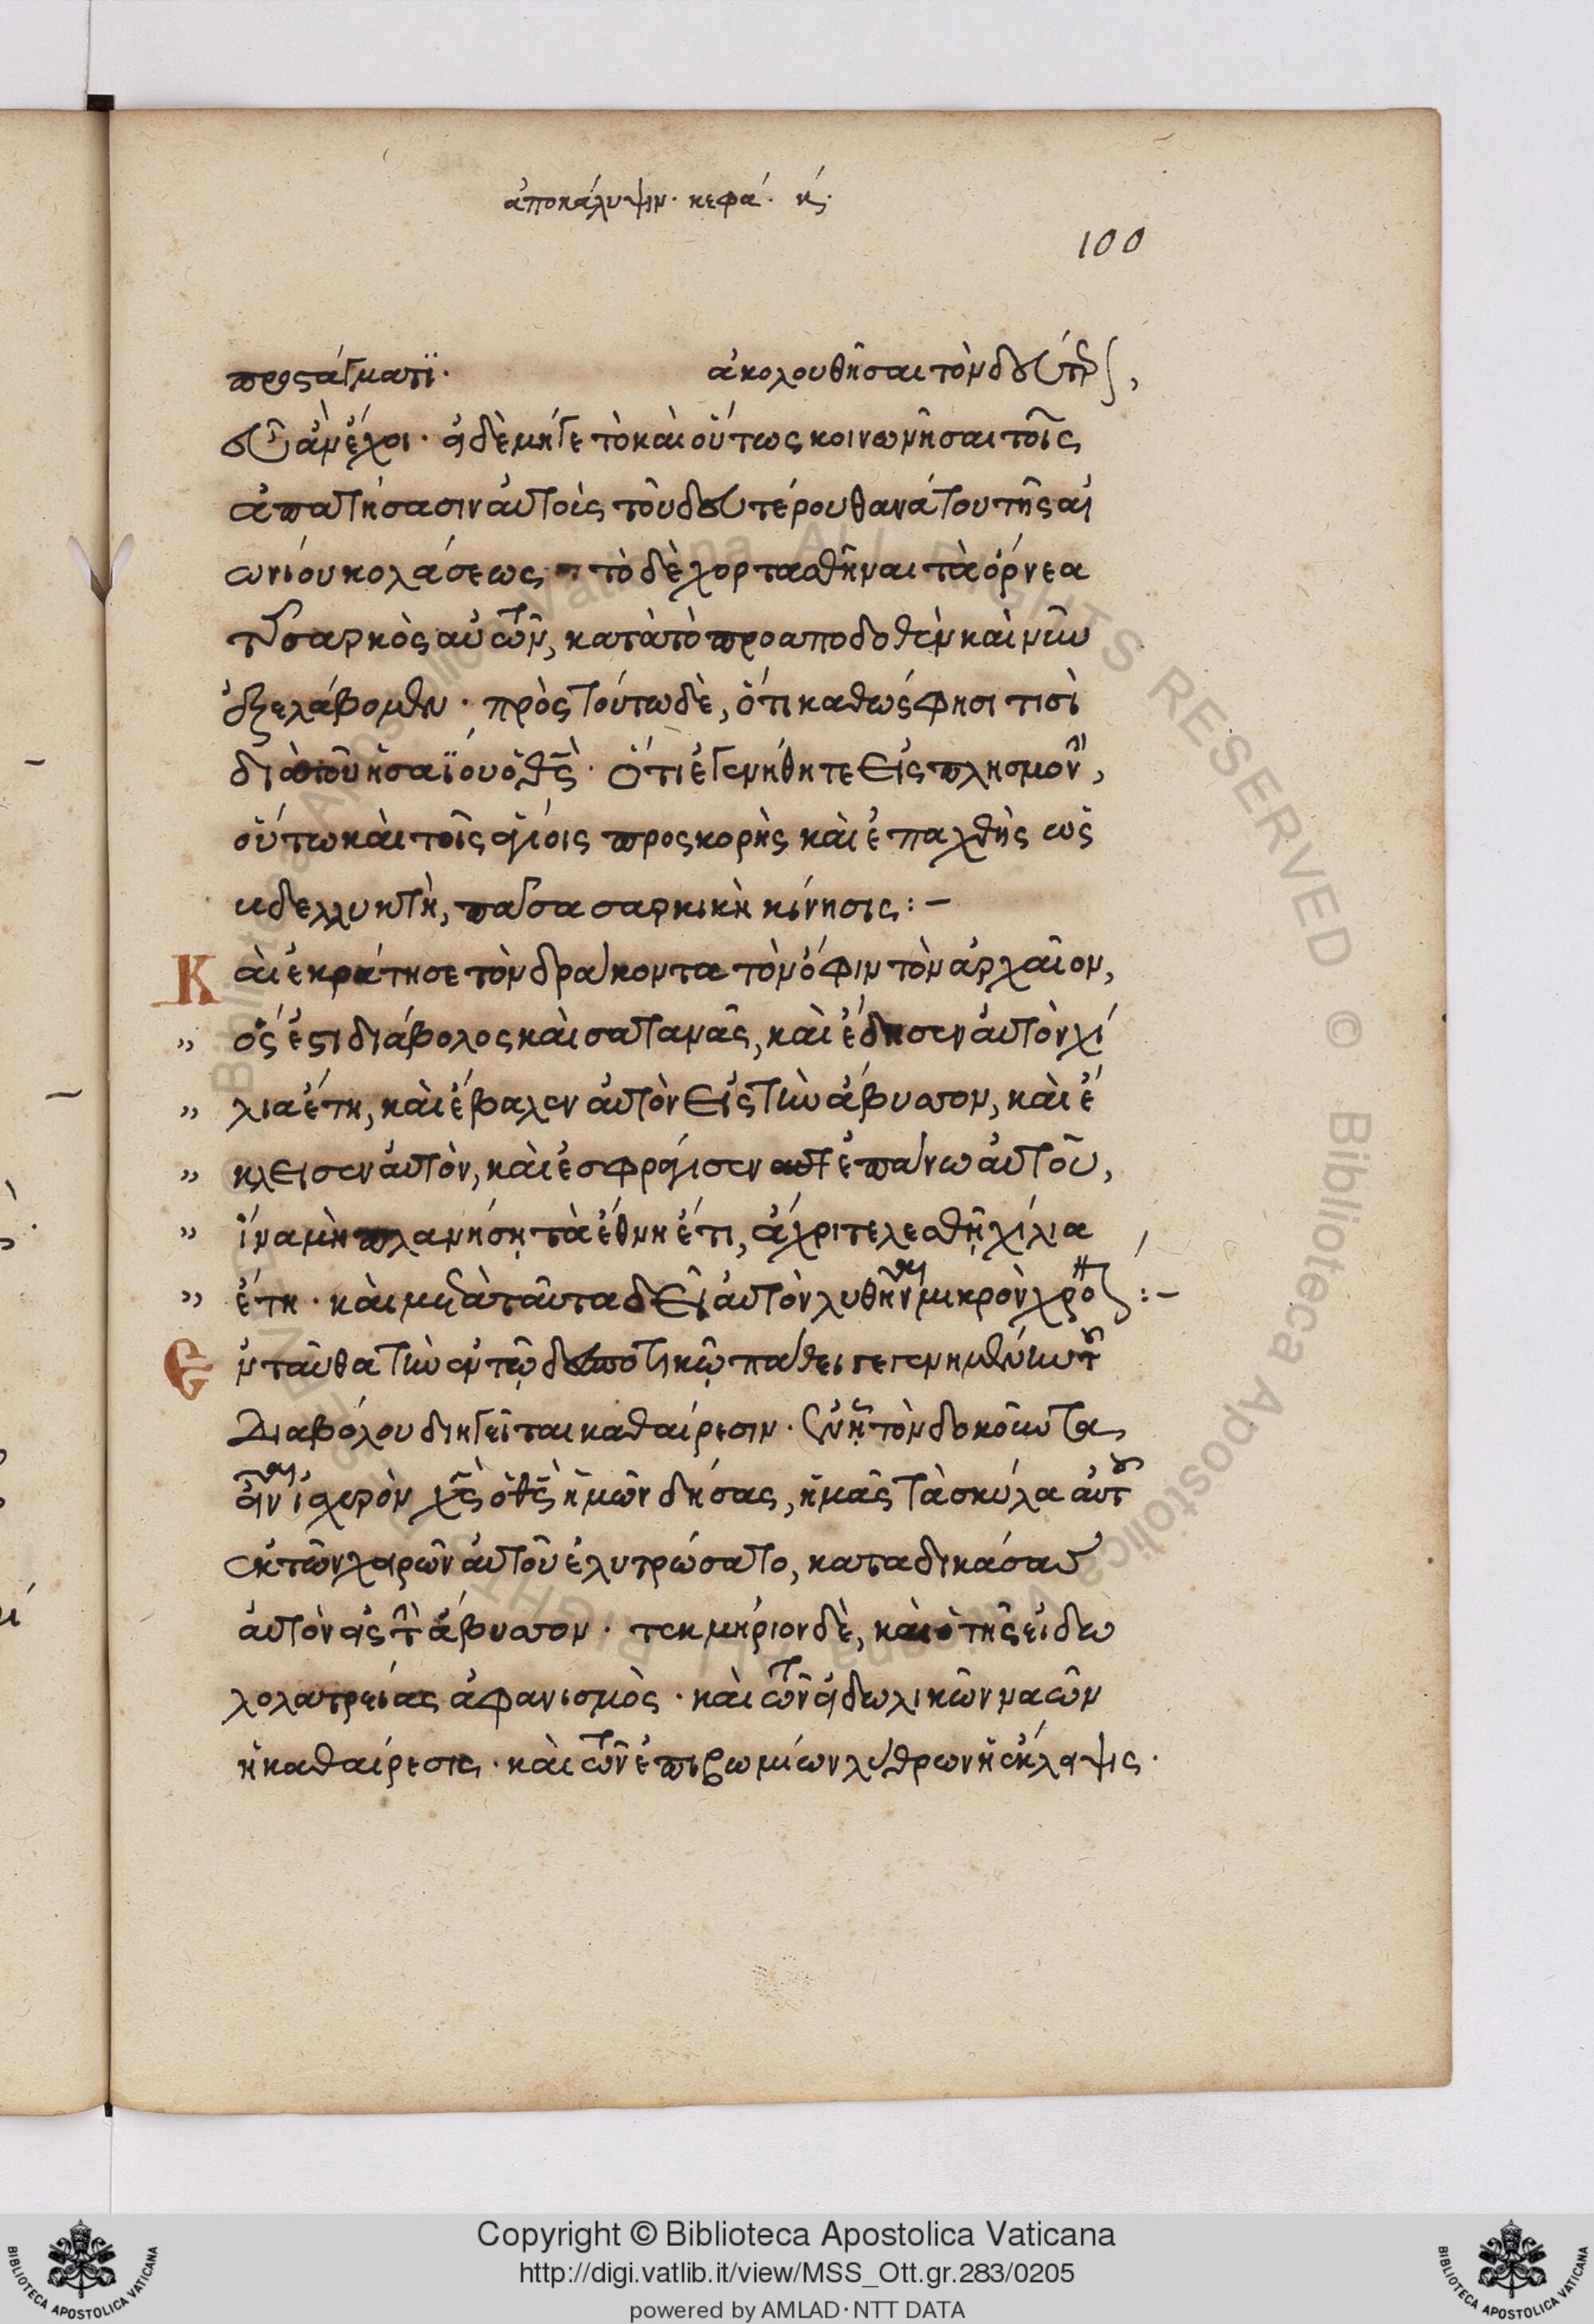 ἀποκάλυψιν. κεφά. κ΄.
100
προστάγματι. ἀκολουθῆσαι τὸν δεύτερον,
ἀνέχοι. εἰ δὲ μήγε τὸ καὶ οὕτως κοινωνῆσαι τοῖς
ἀπατήσασιν αὐτοὺς τοῦ δευτέρου θανάτου τῆς αἰ
ωνίου κολάσεως τὸ δὲ χορτασθῆναι τὰ ὄρνεα
σαρκὸς αὐτῶν, κατὰ τὸ προαποδοθὲν καὶ νῦν
ἐξελάβομεν. πρὸς τούτω δὲ, ὅτι καθώς φησι τισὶ
διὰ τοῦ ἡσαΐου ὁ θς. ὅτι ἐγενήθητε εἰς πλησμονὴν,
οὕτω καὶ τοῖς ἁγίοις προσκορὴς καὶ ἐπαχθὴς ὡς
βδελλυκτὴ, πᾶσα σαρκικὴ κίνησις:–
Καὶ ἐκράτησε τὸν δράκοντα τὸν ὄφιν τὸν ἀρχαῖον,
" ὅς ἐστι διάβολος καὶ σατανᾶς, καὶ ἔδησεν αὐτὸν χί
" λια ἔτη, καὶ ἔβαλεν αὐτὸν εἰς τὴν ἄβυσσον, καὶ ἔ
" κλεισεν αὐτὸν, καὶ ἐσφράγισεν ἐπάνω αὐτοῦ,
" ἵνα μὴ πλανήσῃ τὰ ἔθνη ἔτι, ἄχρι τελεσθῇ χίλια
" ἔτη. καὶ μετὰ ταῦτα δεῖ αὐτὸν λυθῆναι μικρὸν χρόνον:–
Ἐνταῦθα τὴν ἐν τῷ δεσποτικῷ πάθει γεγενημένην τοῦ
Διαβόλου διηγεῖται καθαίρεσιν. ἐν ᾗ τὸν δοκοῦντα
εἶναι ἰσχυρὸν χς ὁ θς ἡμῶν δήσας, ἡμᾶς τὰ σκύλα αὐτοῦ
ἐκ τῶν χειρῶν αὐτοῦ ἐλυτρώσατο, καταδικάσας
αὐτὸν εἰς τὴν ἄβυσσον. τεκμήριον δὲ, καὶ ὁ τῆς εἰδω
λολατρείας ἀφανισμὸς. καὶ τῶν εἰδωλικῶν ναῶν
ἡ καθαίρεσις. καὶ τῶν ἐπιβωμίων λύθρων ἡ ἔκλειψις.
Copyright © Biblioteca Apostolica Vaticana
http://digi.vatlib.it/view/MSS_Ott.gr.283/0205
powered by AMLAD·NTT DATA